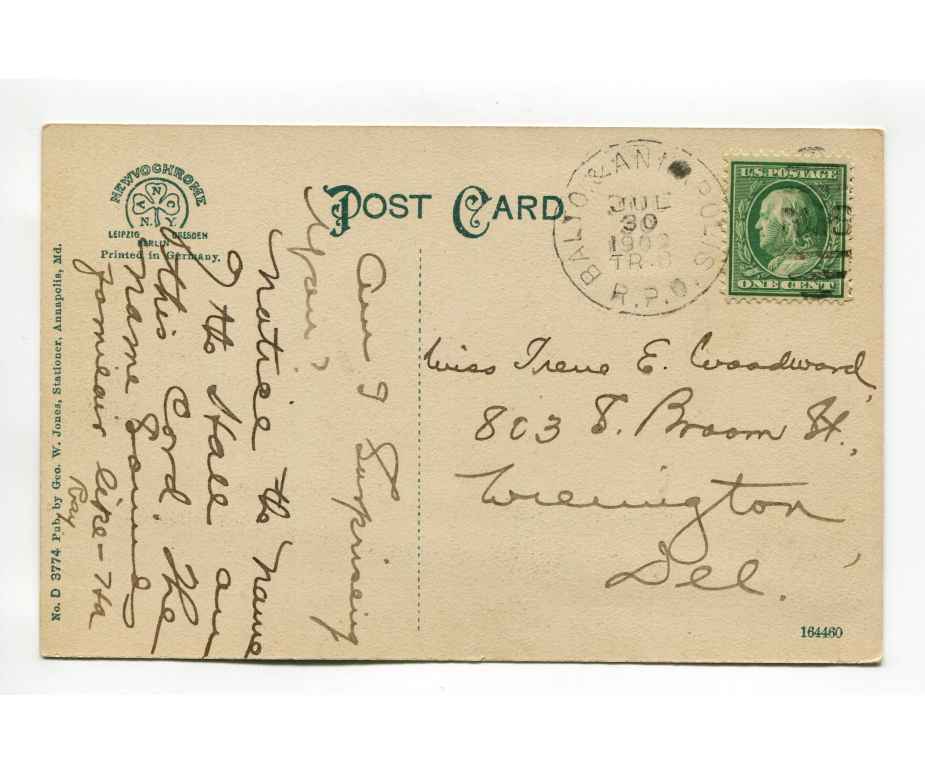 NEWVOCHROME
A N C
N. Y.
LEIPZIG DRESDEN
BERLIN
Printed in Germany.
POST CARD
BALTO & ANNAPOLIS
JUL
30
1909
TR.
R.P.O.
U.S. POSTAGE
ONE CENT
Am I Surpriseing
you?
Notice the name
of the Hall on
this Card. The
Name Sounds
familair like — Ha
Ray
Miss Irene E. Woodward,
803 S. Broom St.
Wilmington
Del.
No. D 3774 Pub. by Geo. W. Jones, Stationer, Annapolis, Md.
164460